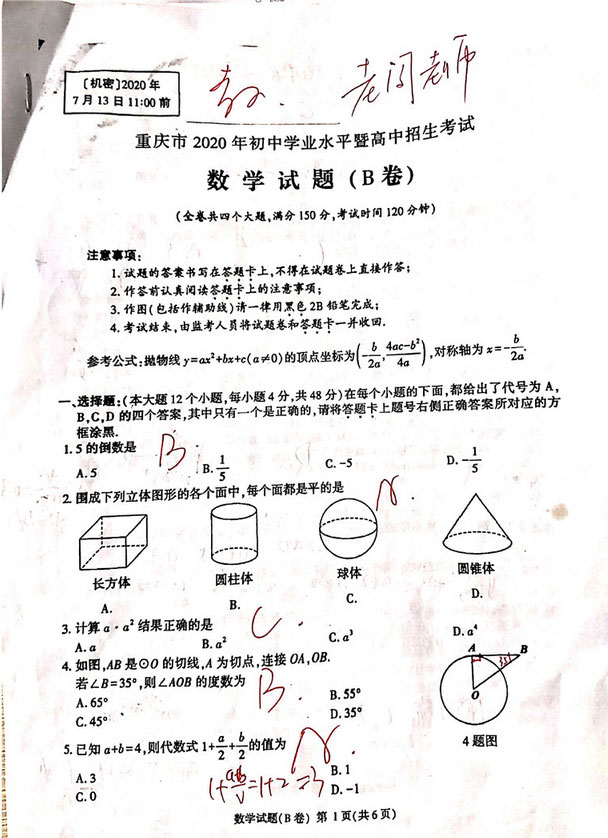 〔机密〕2020年
7月13日11:00前
老闫老师
重庆市2020年初中学业水平暨高中招生考试
数学试题(B卷)
(全卷共四个大题,满分150分,考试时间120分钟)
注意事项:
1.试题的答案书写在答题卡上,不得在试题卷上直接作答;
2.作答前认真阅读答题卡上的注意事项;
3.作图(包括作辅助线)请一律用黑色2B铅笔完成;
4.考试结束,由监考人员将试题卷和答题卡一并收回.
参考公式:抛物线y=ax²+bx+c(a≠0)的顶点坐标为(-b/2a, 4ac-b²/4a),对称轴为x=-b/2a.
一、选择题:(本大题12个小题,每小题4分,共48分)在每个小题的下面,都给出了代号为A,
B,C,D的四个答案,其中只有一个是正确的,请将答题卡上题号右侧正确答案所对应的方
框涂黑.
1.5的倒数是 B
A.5 B.1/5 C.-5 D.-1/5
2.围成下列立体图形的各个面中,每个面都是平的是
长方体 圆柱体 球体 圆锥体
A. B. C. D.
3.计算a·a²结果正确的是 C
A.a B.a² C.a³ D.a⁴
4.如图,AB是⊙O的切线,A为切点,连接OA,OB.
若∠B=35°,则∠AOB的度数为 B
A.65° B.55°
C.45° D.35°
A B
35°
O
4题图
5.已知a+b=4,则代数式1+a/2+b/2的值为
A.3 B.1
C.0 D.-1
1+(a+b)/2=1+2=3
数学试题(B卷) 第1页(共6页)